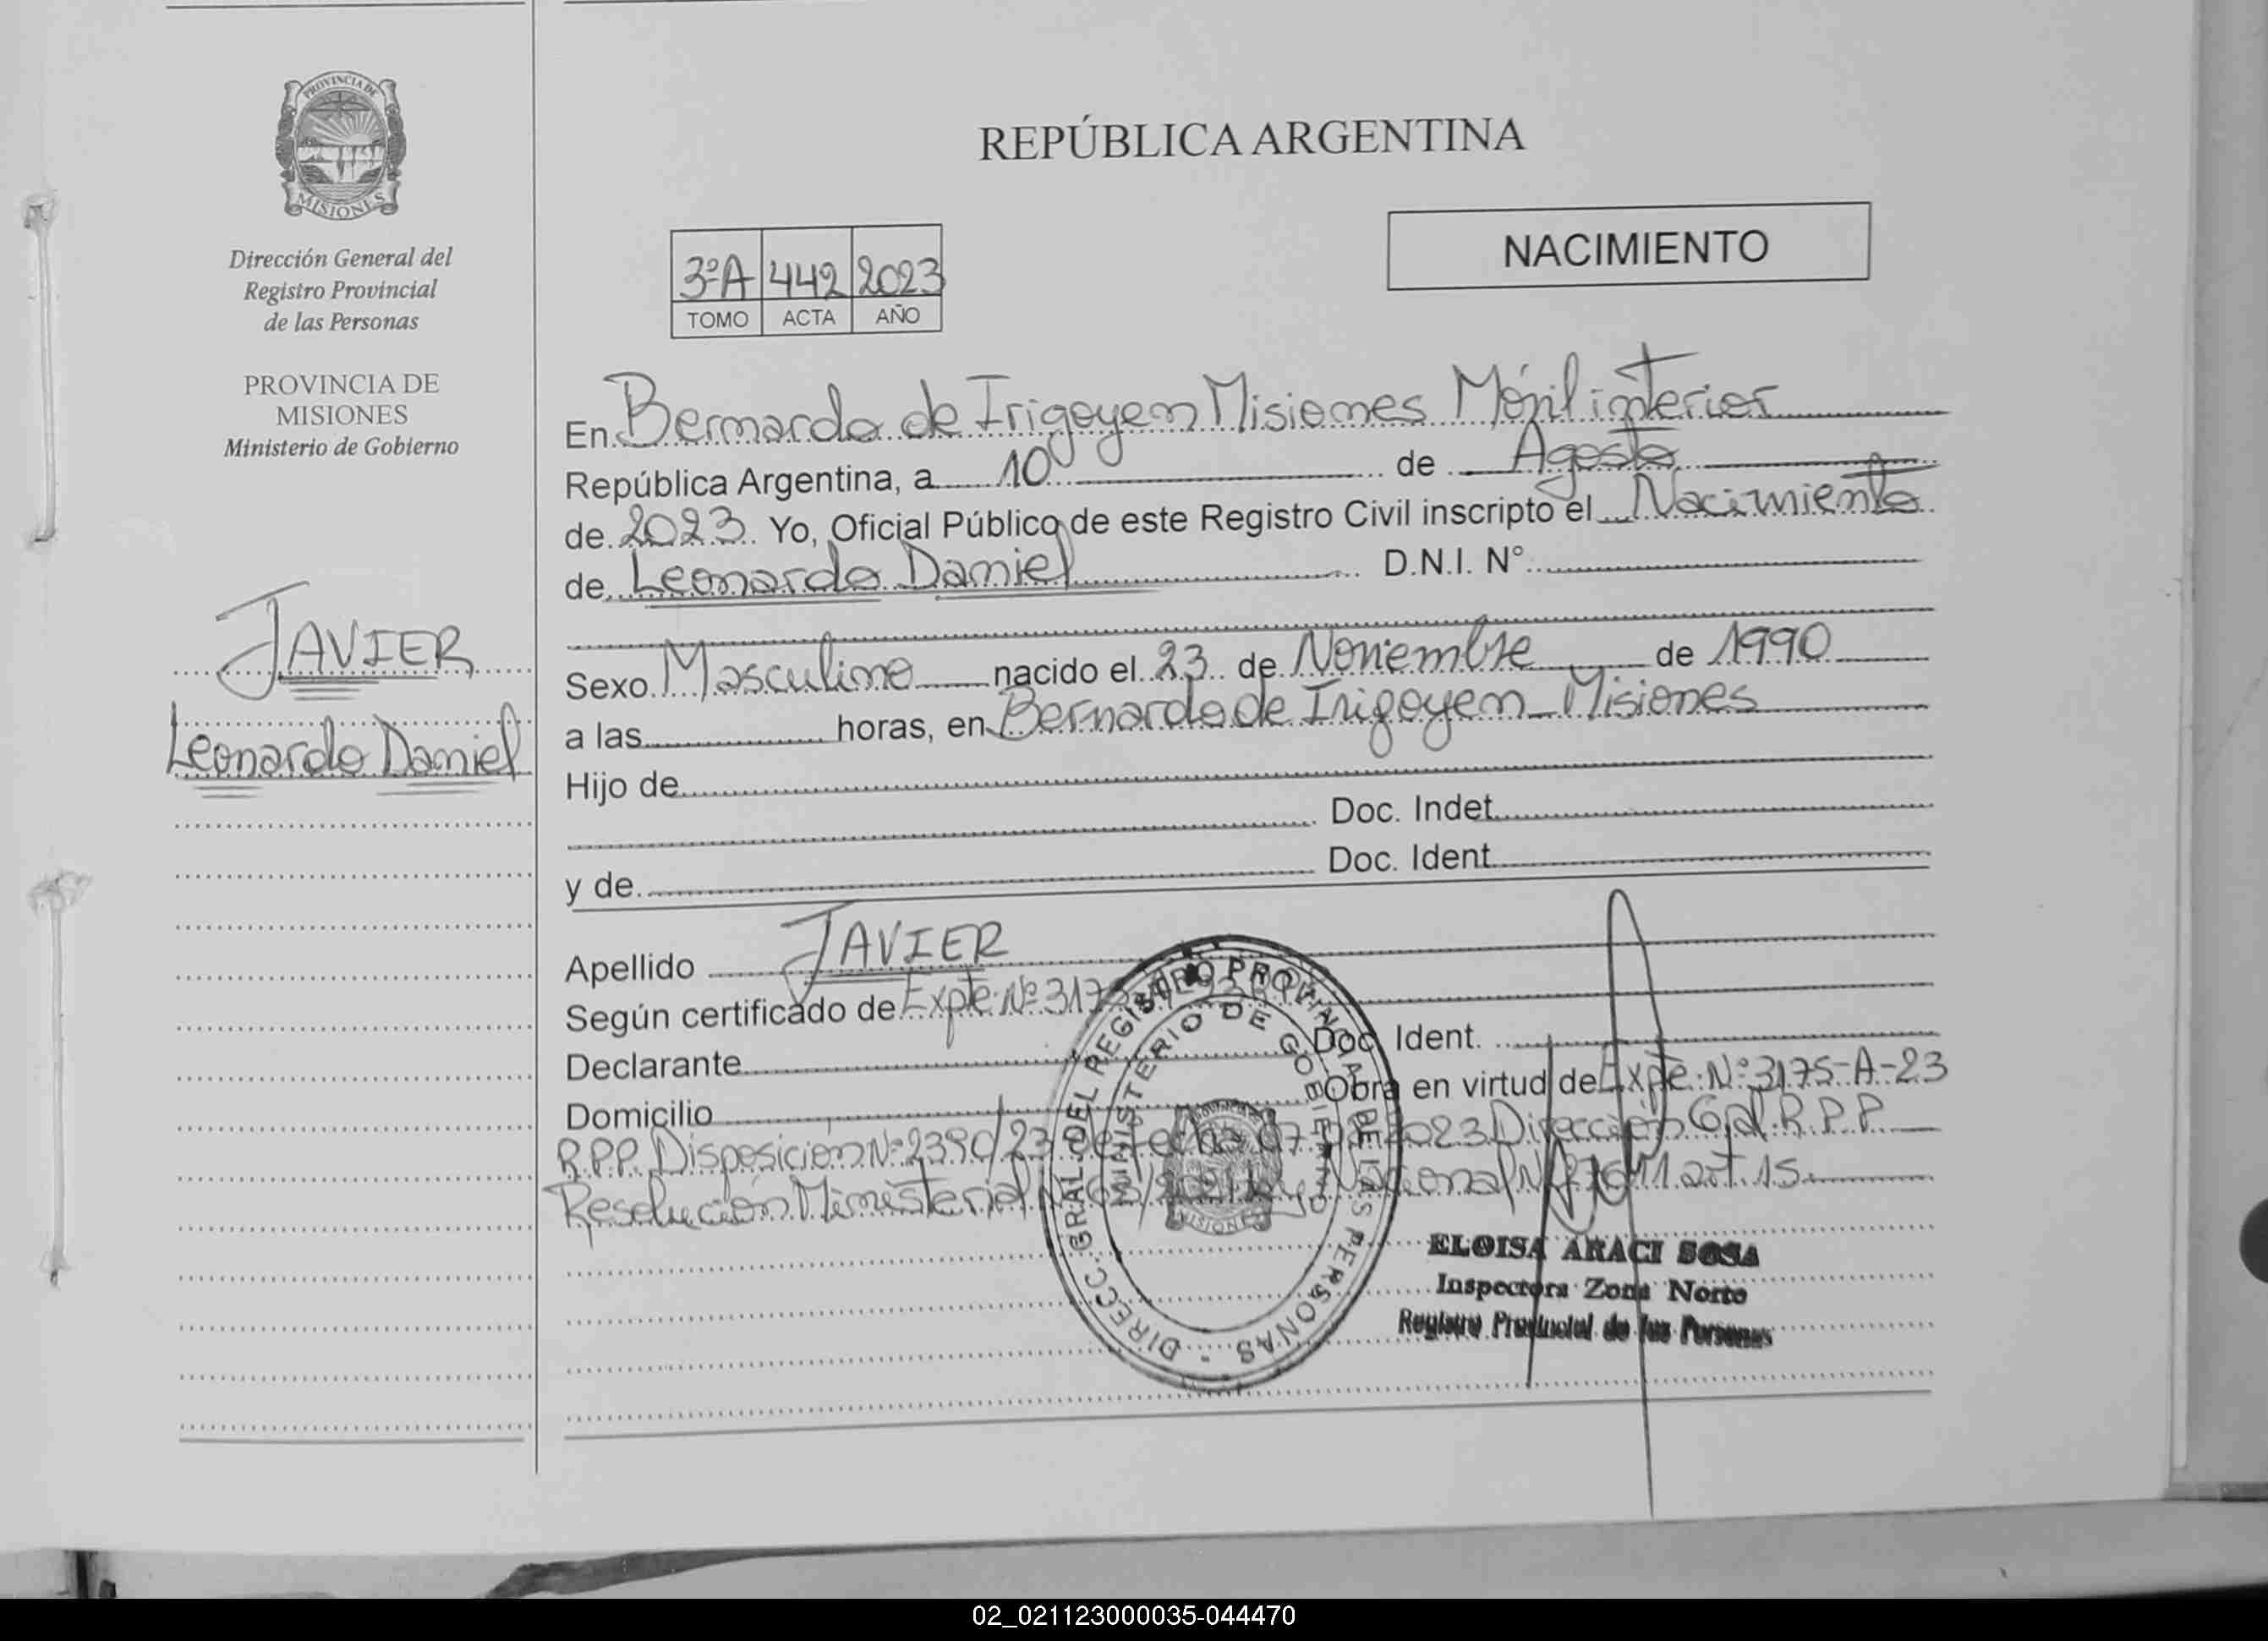 PROVINCIA DE
MISIONES
Dirección General del
Registro Provincial
de las Personas
PROVINCIA DE
MISIONES
Ministerio de Gobierno
JAVIER
Leonardo Daniel
REPÚBLICA ARGENTINA
NACIMIENTO
3ºA 442 2023
TOMO ACTA AÑO
En Bernardo de Irigoyen Misiones Móvil interior
República Argentina, a 10 de Agosto
de 2023 Yo, Oficial Público de este Registro Civil inscripto el Nacimiento
de Leonardo Daniel D.N.I. N°
Sexo Masculino nacido el 23 de Noviembre de 1990
a las horas, en Bernardo de Irigoyen Misiones
Hijo de
Doc. Indet.
y de Doc. Ident.
Apellido JAVIER
Según certificado de Expte Nº 3175
Declarante Doc. Ident.
Domicilio Obra en virtud de Expte Nº 3175-A-23
R.P.P. Disposición Nº 2390/23 de fecha 07 2023 Dirección Gral R.P.P.
Resolución Ministerial Nacional art. 15
DIRECC. GRAL. DEL REGISTRO PROVINCIAL DE LAS PERSONAS -
MINISTERIO DE GOBIERNO
MISIONES
ELOISA ARACI SOSA
Inspectora Zona Norte
Registro Provincial de las Personas
02_021123000035-044470